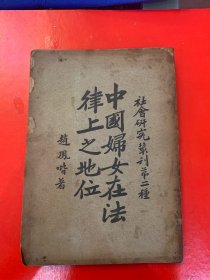 社會研究叢刊第二種
中國婦女在法
律上之地位
趙鳳喈著